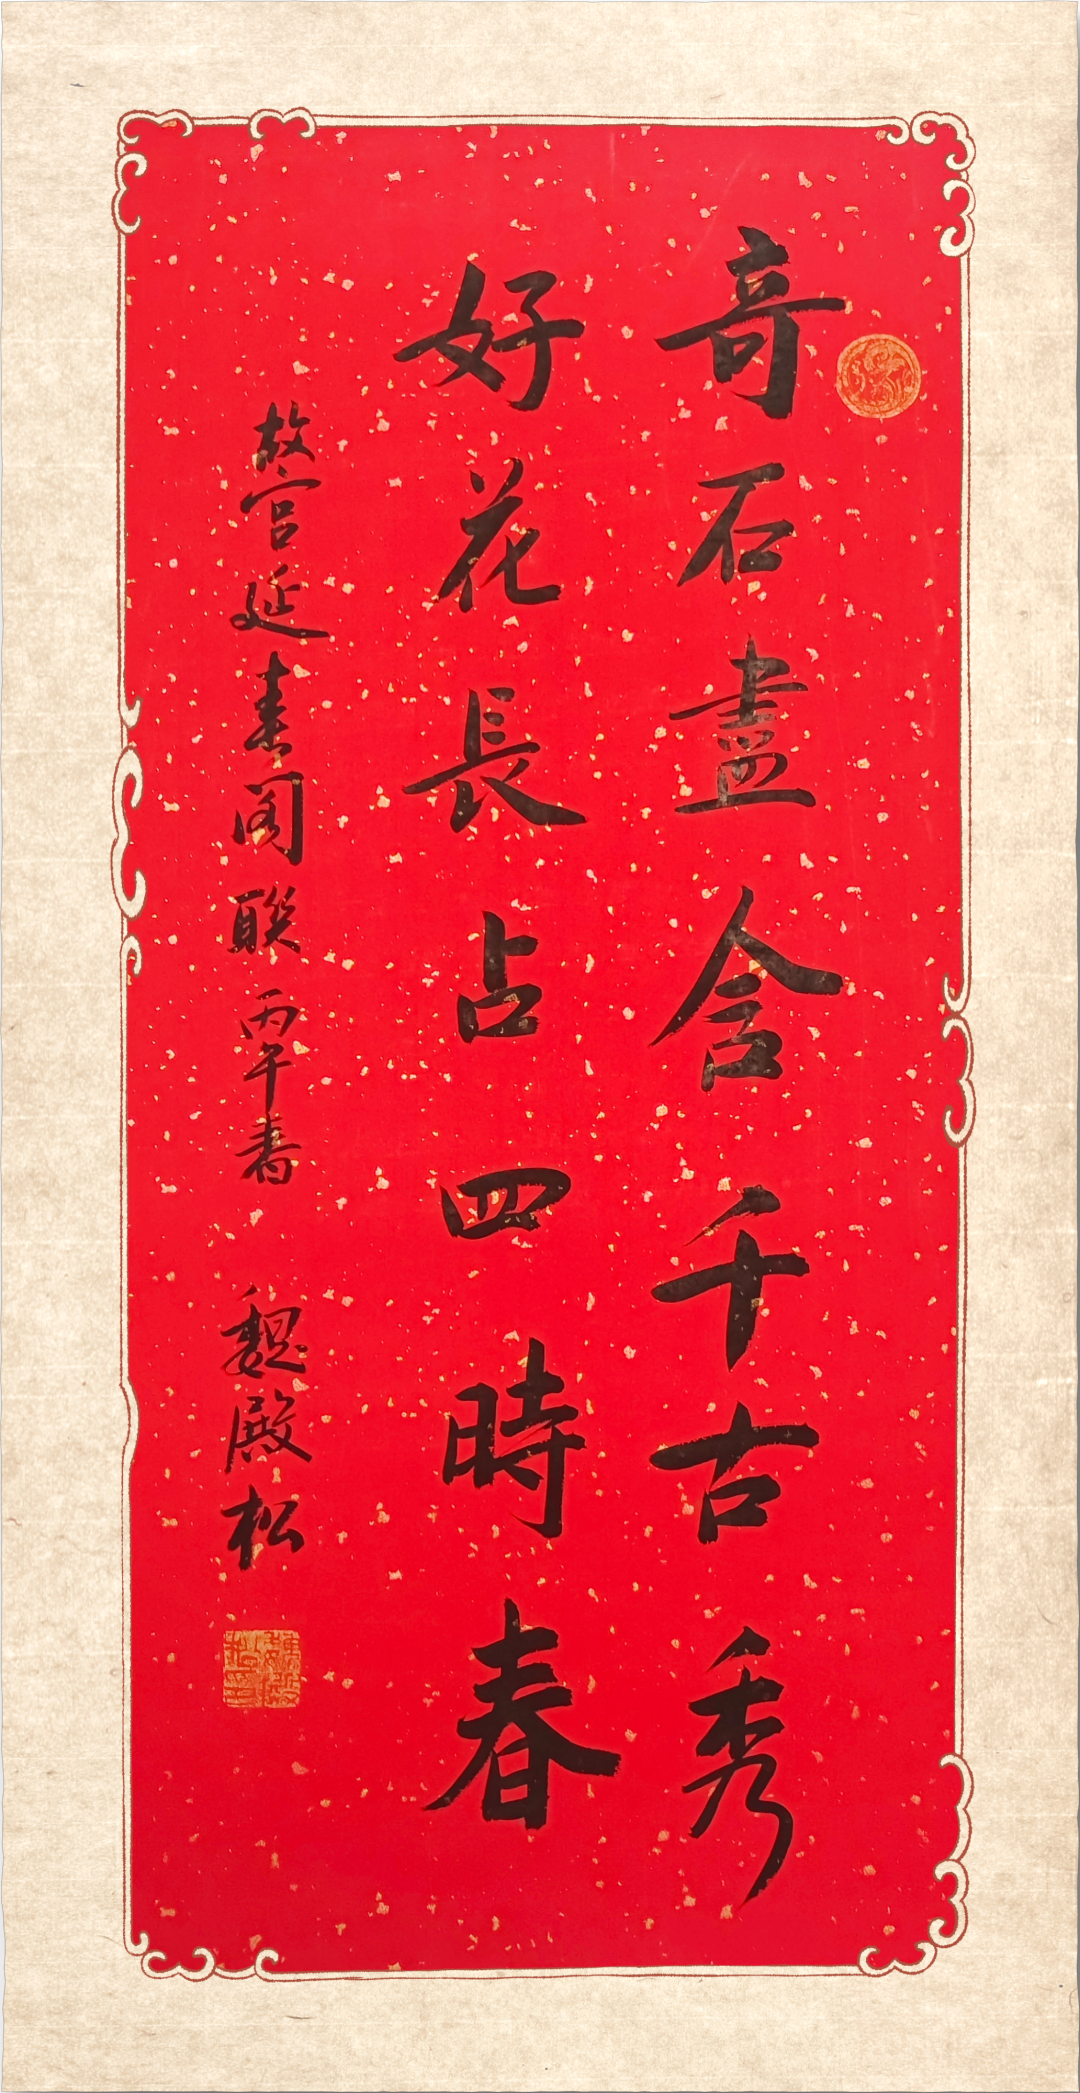 奇石盡含千古秀
好花長占四時春
故宮延春阁聯 丙午書 魏殿松